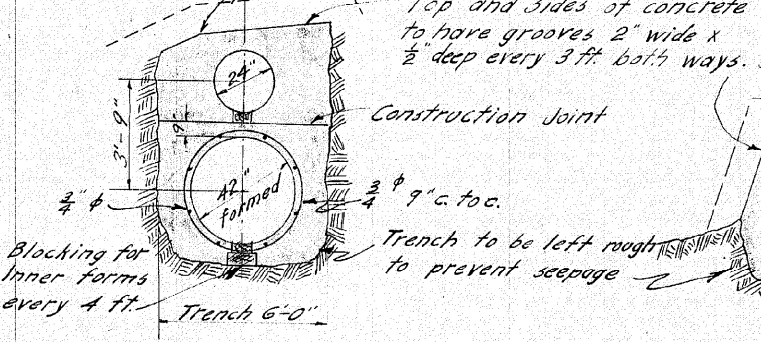 Top and Sides of concrete
to have grooves 2" wide x
½" deep every 3 ft. both ways.
24"
3'-9"
Construction Joint
9"
42"
formed
¾" ϕ
¾ ϕ 9" c. to c.
Blocking for
Inner forms
every 4 ft.
Trench to be left rough
to prevent seepage
Trench 6'-0"